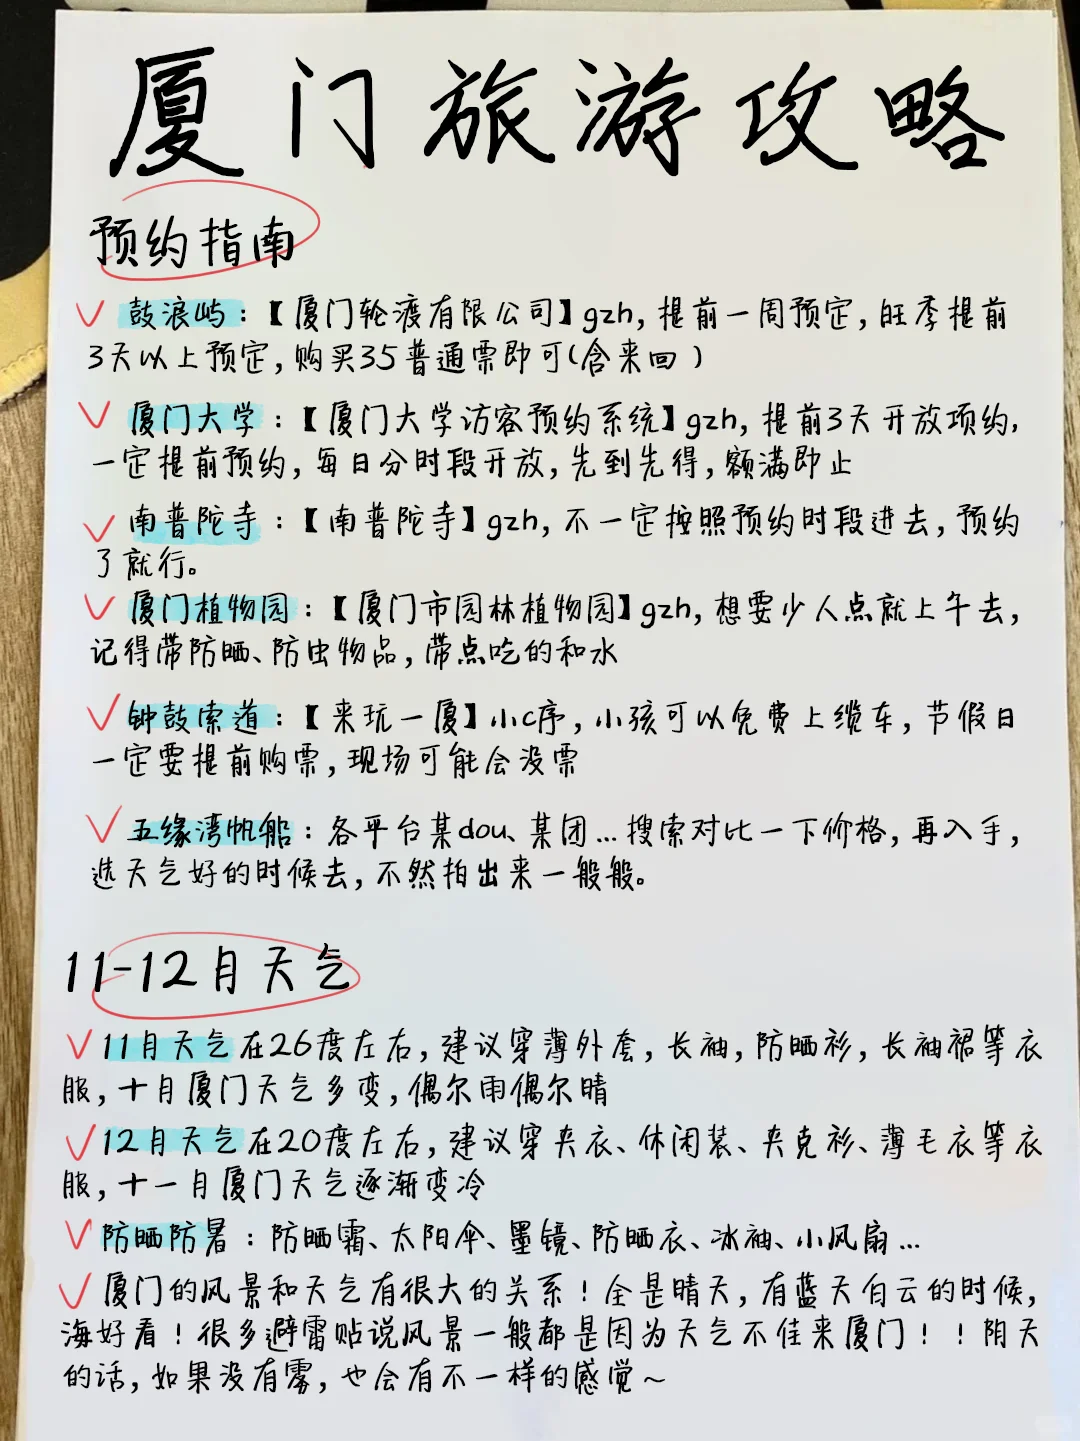 厦门旅游攻略
预约指南
鼓浪屿：【厦门轮渡有限公司】gzh，提前一周预定，旺季提前
3天以上预定，购买35普通票即可(含来回）
厦门大学：【厦门大学访客预约系统】gzh，提前3天开放项约，
一定提前预约，每日分时段开放，先到先得，额满即止
南普陀寺：【南普陀寺】gzh，不一定按照预约时段进去，预约
了就行。
厦门植物园：【厦门市园林植物园】gzh，想要少人点就上午去，
记得带防晒、防虫物品，带点吃的和水
钟鼓索道：【来玩一厦】小c序，小孩可以免费上缆车，节假日
一定要提前购票，现场可能会没票
五缘湾帆船：各平台某dou、某团...搜索对比一下价格，再入手，
选天气好的时候去，不然拍出来一般般。
11-12月天气
11月天气在26度左右，建议穿薄外套，长袖，防晒衫，长袖裙等衣
服，十月厦门天气多变，偶尔雨偶尔晴
12月天气在20度左右，建议穿夹衣、休闲装、夹克衫、薄毛衣等衣
服，十一月厦门天气逐渐变冷
防晒防暑：防晒霜、太阳伞、墨镜、防晒衣、冰袖、小风扇...
厦门的风景和天气有很大的关系！全是晴天，有蓝天白云的时候，
海好看！很多避雷贴说风景一般都是因为天气不佳来厦门！！阴天
的话，如果没有雾，也会有不一样的感觉～